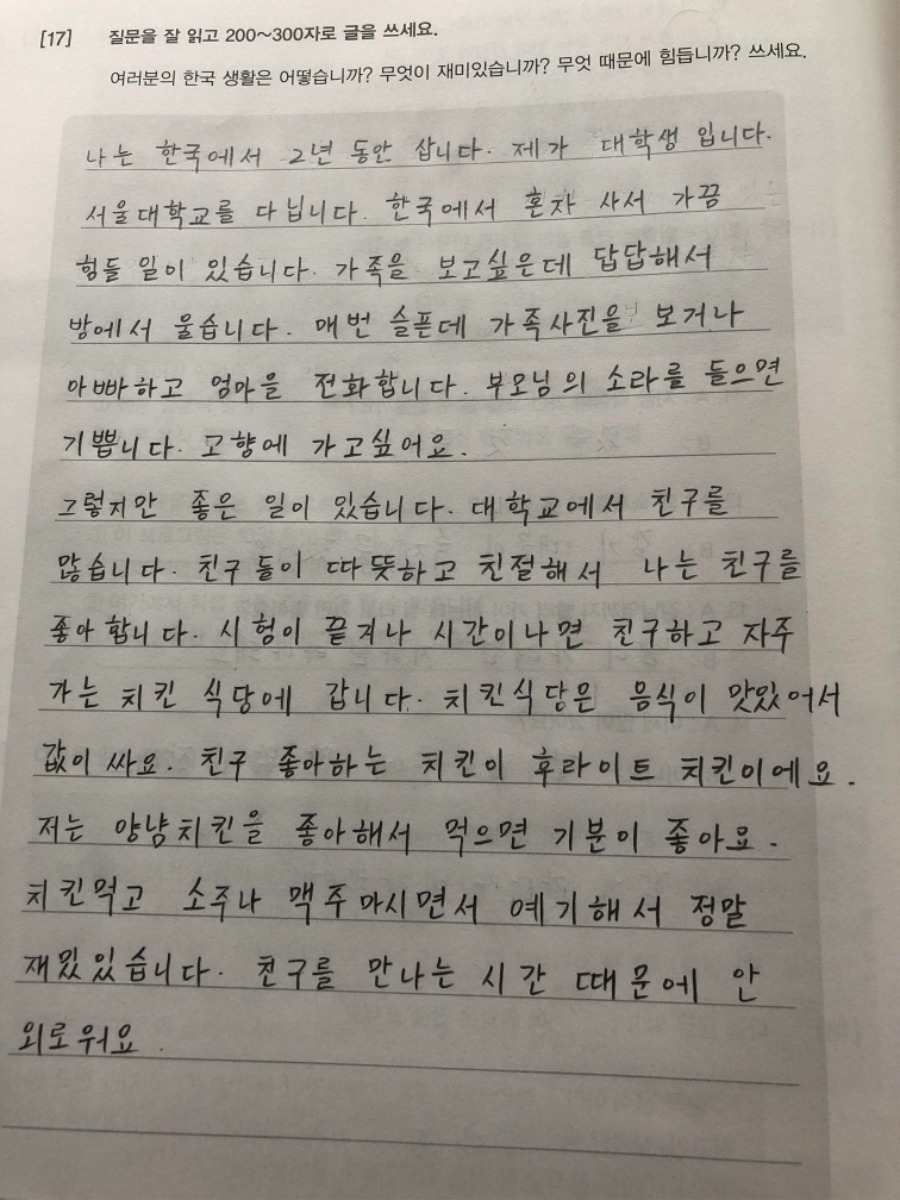 [17] 질문을 잘 읽고 200~300자로 글을 쓰세요.
여러분의 한국 생활은 어떻습니까? 무엇이 재미있습니까? 무엇 때문에 힘듭니까? 쓰세요.
나는 한국에서 2년 동안 삽니다. 제가 대학생 입니다.
서울대학교를 다닙니다. 한국에서 혼자 사서 가끔
힘들 일이 있습니다. 가족을 보고싶은데 답답해서
방에서 울습니다. 매번 슬픈데 가족사진을 보거나
아빠하고 엄마을 전화합니다. 부모님의 소라를 들으면
기쁩니다. 고향에 가고싶어요.
그렇지안 좋은 일이 있습니다. 대학교에서 친구를
많습니다. 친구들이 따뜻하고 친절해서 나는 친구를
좋아합니다. 시험이 끝겨나 시간이나면 친구하고 자주
가는 치킨 식당에 갑니다. 치킨식당은 음식이 맛있어서
값이 싸요. 친구 좋아하는 치킨이 후라이트 치킨이에요.
저는 양냠치킨을 좋아해서 먹으면 기분이 좋아요.
치킨먹고 소주나 맥주 마시면서 예기해서 정말
재밌있습니다. 친구를 만나는 시간 때문에 안
외로워요.